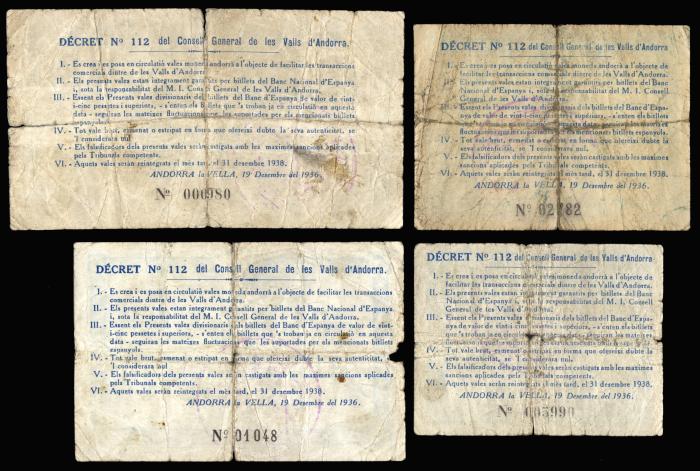 DÉCRET Nº 112 del Consell General de les Valls d'Andorra.
I. - Es crea i es posa en circulació vales moneda andorrà a l'objecte de facilitar les transaccions
comercials diatre de les Valls d'Andorra.
II. - Els presents vales estan integrament garantits per billets del Banc National d'Espanya
i, sota la responsabilitat del M. I. Consell General de les Valls d'Andorra.
III. - Essent els Presents vales divisionaris dels bitllets del Banc d'Espanya de valor de vint-
i-cinc pessetes i superiors, - s'enten els bitllets que 's troban ja en circulació en aqueixa
data - seguiran les mateixes fluctuacions que les suportades per els mencionats bitllets
espanyols.
IV. - Tot vale brut, esmenat o estripat en forma que ofereixi dubte la 'seva autenticitat, se
'l considerara nul.
V. - Els falsificadors dels presents vales seràn castigats amb les maximes sancions aplicades
pels Tribunals competents.
VI. - Aquets vales seràn reintegrats el més tard, el 31 desembre 1938.
ANDORRA la VELLA, 19 Desembre del 1936.
Nº 000980
DÉCRET Nº 112 del Consell General de les Valls d'Andorra.
I. - Es crea i es posa en circulació vales moneda andorrà a l'objecte de
facilitar les transaccions comercials diatre de les Valls d'Andorra.
II. - Els presents vales estan integrament garantits per bitllets del Banc
Nacional d'Espanya i, sota la responsabilitat del M. I. Consell
General de les Valls d'Andorra.
III. - Essent els Presents vales divisionaris dels bitllets del Banc d'Espa-
nya de valor de vint-i-cinc pessetes i superiors, - s'enten els bitllets
IV. - Tot vale brut, esmenat o estripat en forma que ofereixi dubte la
seva autenticitat, se 'l considerara nul.
V. - Els falsificadors dels presents vales seràn castigats amb les maximes
sancions aplicades pels Tribunals competents.
VI. - Aquets vales seràn reintegrats el més tard, el 31 desembre 1938.
ANDORRA la VELLA, 19 Desembre del 1936.
Nº 02782
DÉCRET Nº 112 del Consell General de les Valls d'Andorra.
I. - Es crea i es posa en circulatió vales moneda andorrà a l'objecte de facilitar les transaccions
comercials diatre de les Valls d'Andorra.
II. - Els presents vales estan integrament garantits per bitllets del Banc Nacional d'Espanya
i, sota la responsabilitat del M. I. Consell General de les Valls d'Andorra.
III. - Essent els Presents vales divisionaris dels bitllets del Banc d'Espanya de valor de vint-
i-cinc pessetes i superiors, - s'enten els bitllets que 's troban ja en circulació en aquesta
data - seguiran les mateixes fluctuacions que les suportades per els mencionats bitllets
espanyols.
IV. - Tot vale brut, esmenat o estripat en forma que ofereixi dubte la 'seva autenticitat, se
'l considerara nul
V. - Els falsificadors dels presents vales seràn castigats amb les maximes sancions aplicades
pels Tribunals competents.
VI. - Aquets vales seràn reintegrats el més tard, el 31 desembre 1938.
ANDORRA la VELLA, 19 Desembre del 1936.
Nº 01048
DÉCRET Nº 112 del Consell General de les Valls d'Andorra.
I. - Es crea i es posa en circulatió vales moneda andorrà a l'objecte de
facilitar les transaccions comercials diatre de les Valls d'Andorra.
II. - Els presents vales estan integrament garantits per bitllets del Banc
Nacional d'Espanya i, sota la responsabilitat del M. I. Consell
General de les Valls d'Andorra.
III. - Essent els Presents vales divisionaris dels bitllets del Banc d'Espa-
nya de valor de vint-i-cinc pessetes i superiors, - s'enten els bitllets
IV. - Tot vale brut, esmenat o estripat en forma que ofereixi dubte la
seva autenticitat, se 'l considerara nul.
V. - Els falsificadors dels presents vales seràn castigats amb les maximes
sancions aplicades pels Tribunals competents.
VI. - Aquets vales seràn reintegrats el més tard, el 31 desembre 1938.
ANDORRA la VELLA, 19 Desembre del 1936.
Nº 005990